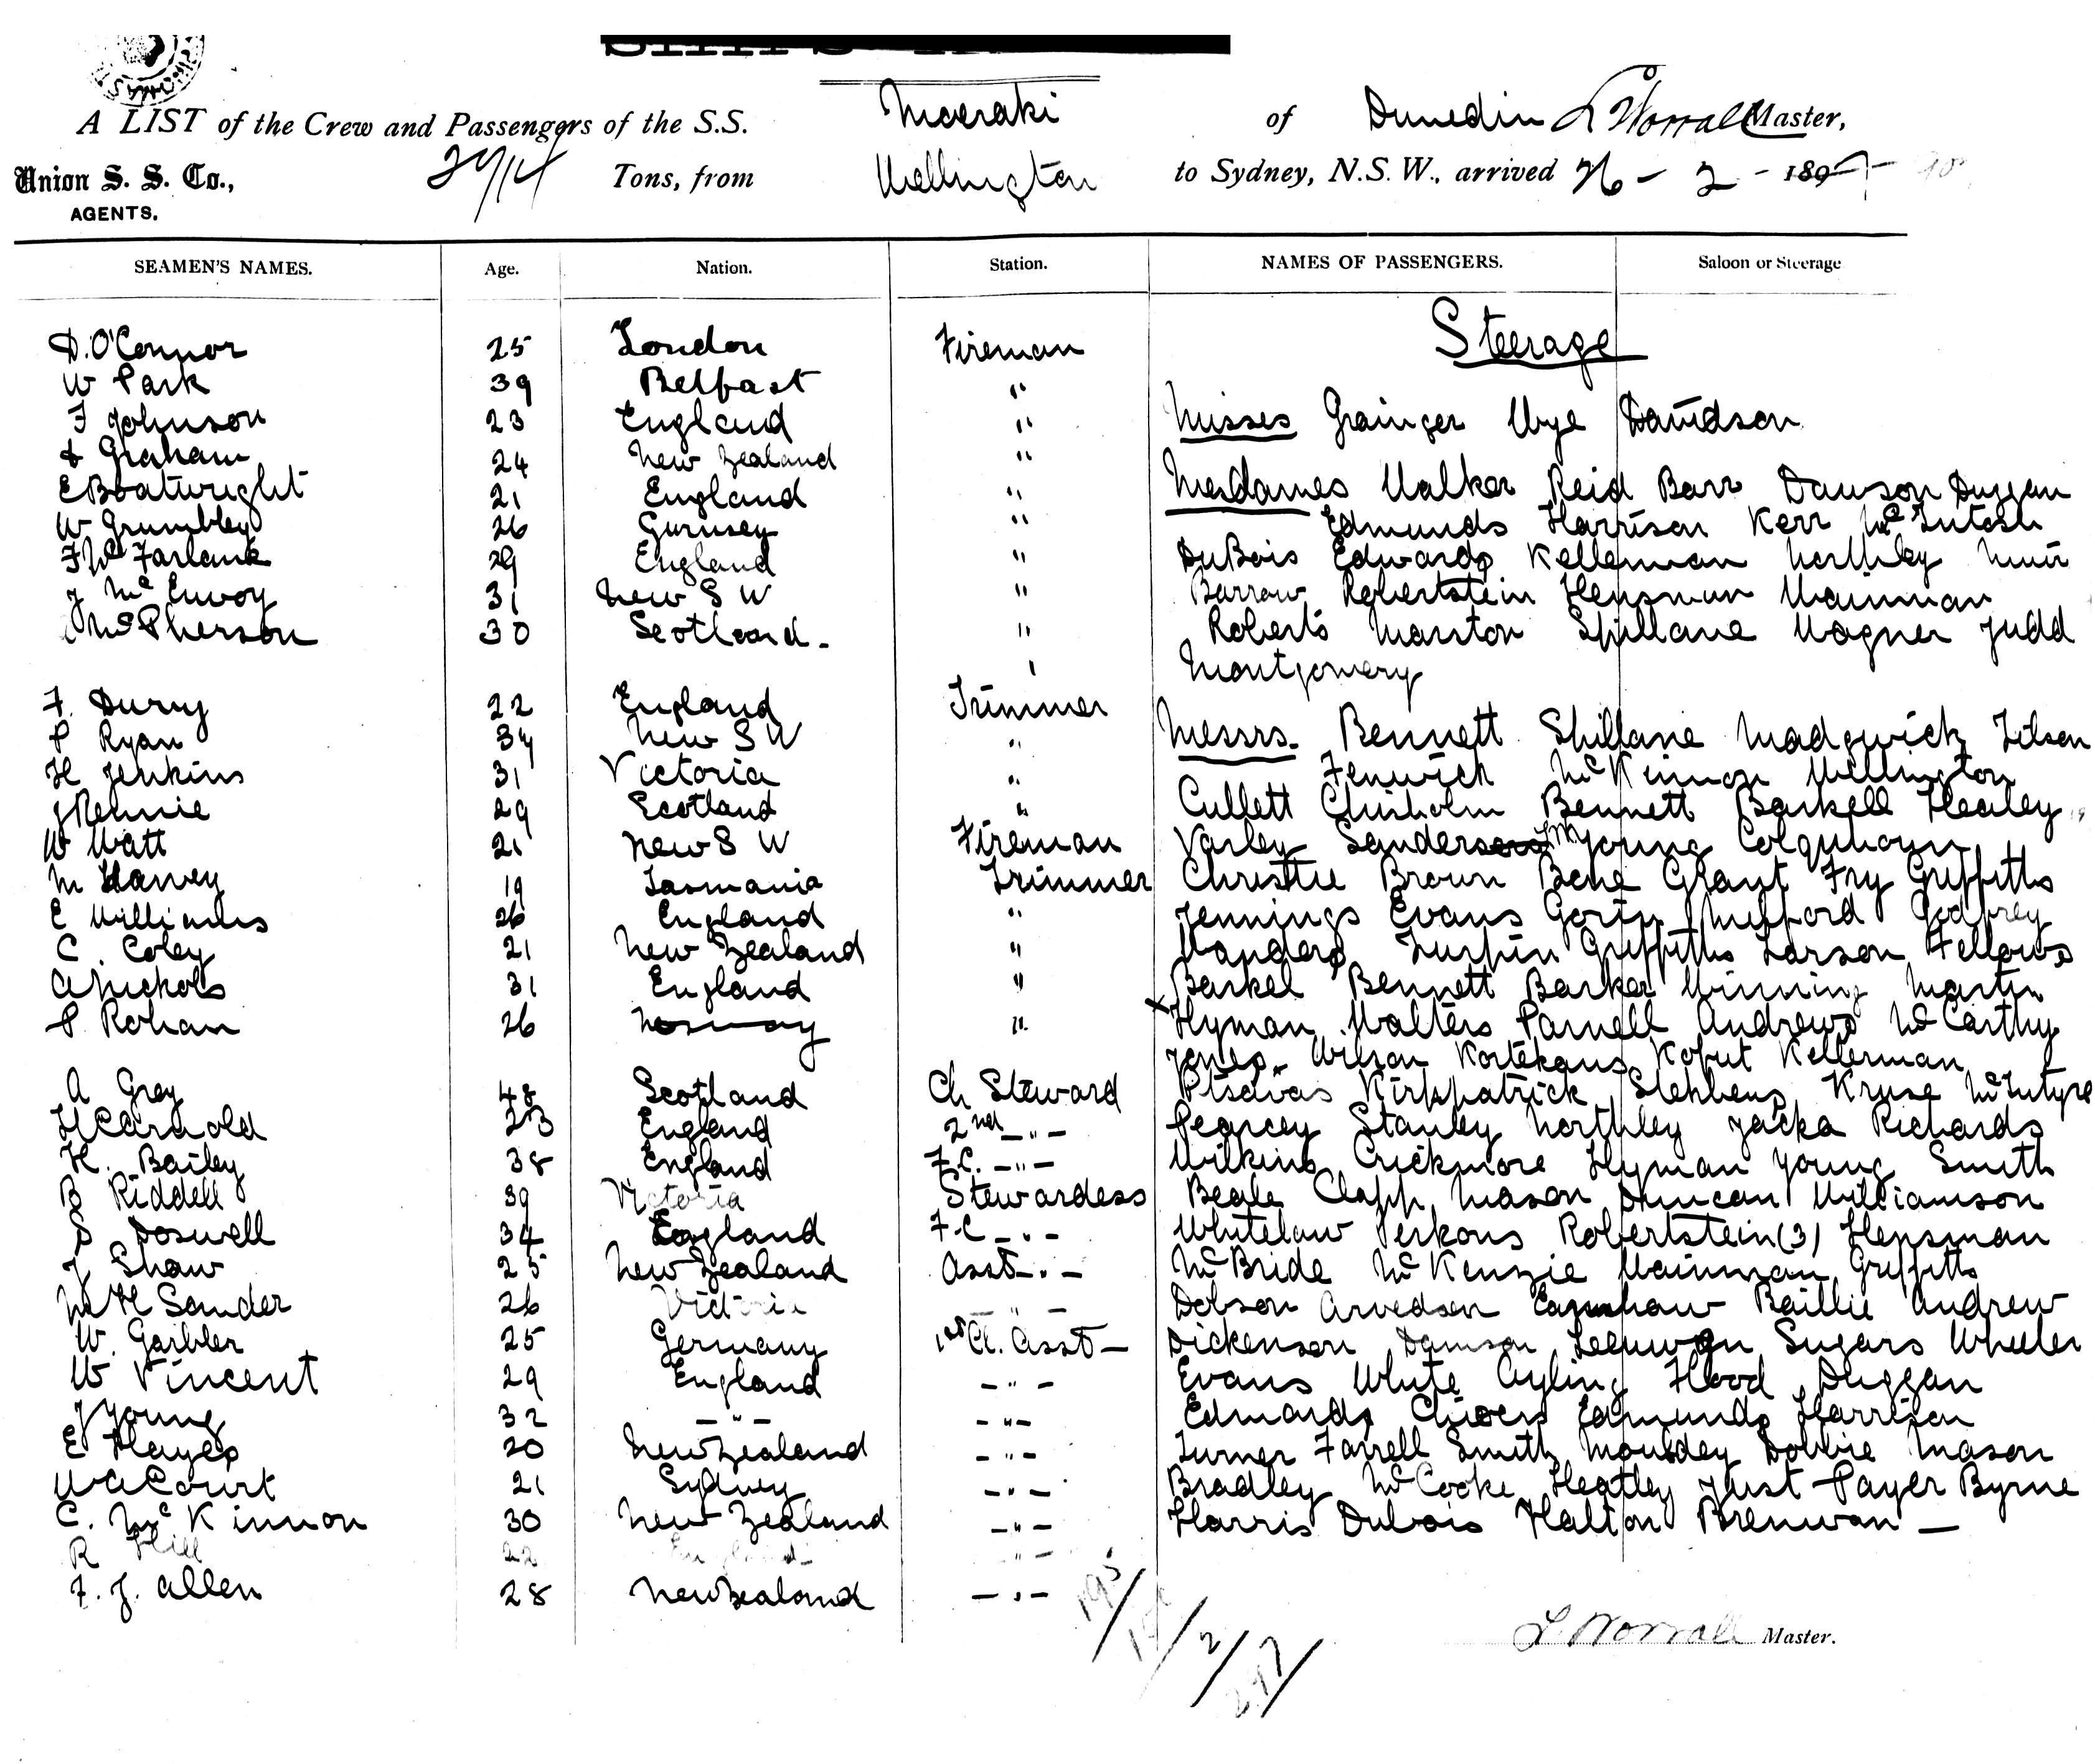 A LIST of the Crew and Passengers of the S.S. Moeraki of Dunedin L Worrall Master,
Union S. S. Co., Tons, from Wellington to Sydney, N.S.W., arrived 26 - 2 - 189
AGENTS.
SEAMEN'S NAMES. Age. Nation. Station. NAMES OF PASSENGERS. Saloon or Steerage
Steerage
D. O'Connor 25 London Fireman
W Park 39 Belfast "
F Johnson 23 England " Misses Grainger Wye Davidson
Graham 24 New Zealand "
E Boatwright 21 England " Mesdames Walker Reid Barr Dawson Duggan
W Grumbley 26 Gurnsey " Edmunds Harrison Kerr McIntosh
F Mc Farlank 29 England " DuBois Edwards Kellerman Northley Muir
J McEnvoy 31 New S W " Barrow Robertstein Hensman Wainman
McPherson 30 Scotland - " Roberts Manton Spillane Wagner Judd
Montgomery
F. Dury 22 England Trimmer
P Ryan 34 New S W " Messrs. Bennett Spillane Madgwick Tilson
H Jenkins 31 Victoria " Fenwick McKinnon Wellington
J Rennie 29 Scotland " Cullett Chisholm Bennett Barkell Healey
W Watt 21 New S W Fireman Varley Sanders Young Colquhoun
M Harvey 19 Tasmania Trimmer Christie Brown Bene Grant Fry Griffiths
E Williams 26 England " Jennings Evans Gorin Mulford Godfrey
C. Coley 21 New Zealand " Turpin Griffiths Larson Fellows
A Nichols 31 England " Barkel Bennett Barker Winning Martin
P. Rohan 26 Norway " Hyman Walters Parnell Andrews McCarthy
Jones Wilson Kortekans Koput Kellerman
A Grey 48 Scotland Ch Steward Kirkpatrick Stephens Kruse McIntyre
H C Arnold 23 England 2nd -"- Pearcey Stanley Northley Jacka Richards
H. Bailey 38 England F.C. -"- Wilkins Crickmore Hyman Young Smith
B Riddell 39 Victoria Stewardess Beale Clapp Mason Duncan Williamson
S Doswell 34 England F.C -"- Whitelaw Perkons Robertstein (3) Hensman
J Shaw 25 New Zealand Asst -"- McBride McKenzie Wainman Griffiths
M H Sander 26 Victoria -"- Dobson Arvedsen Earnshaw Baillie Andrew
W. Garbler 25 Germany 1st Cl. Asst - Dickenson Dawson Leeuwen Sugars Wheeler
W Vincent 29 England -"- Evans White Ayling Flood Duggan
J Young 32 -"- -"- Edwards Chivers Edmunds Harrison
E Hayes 20 New Zealand -"- Turner Farrell Smith Mouldey Dobbie Mason
W A Court 21 Sydney -"- Bradley McCooke Heatley Just Payer Byrne
C. McKinnon 30 New Zealand -"- Harris Dubois Halton Brenwan -
R Hill 22 England -"-
F. J. Allen 28 New Zealand -"-
L Worrall Master.